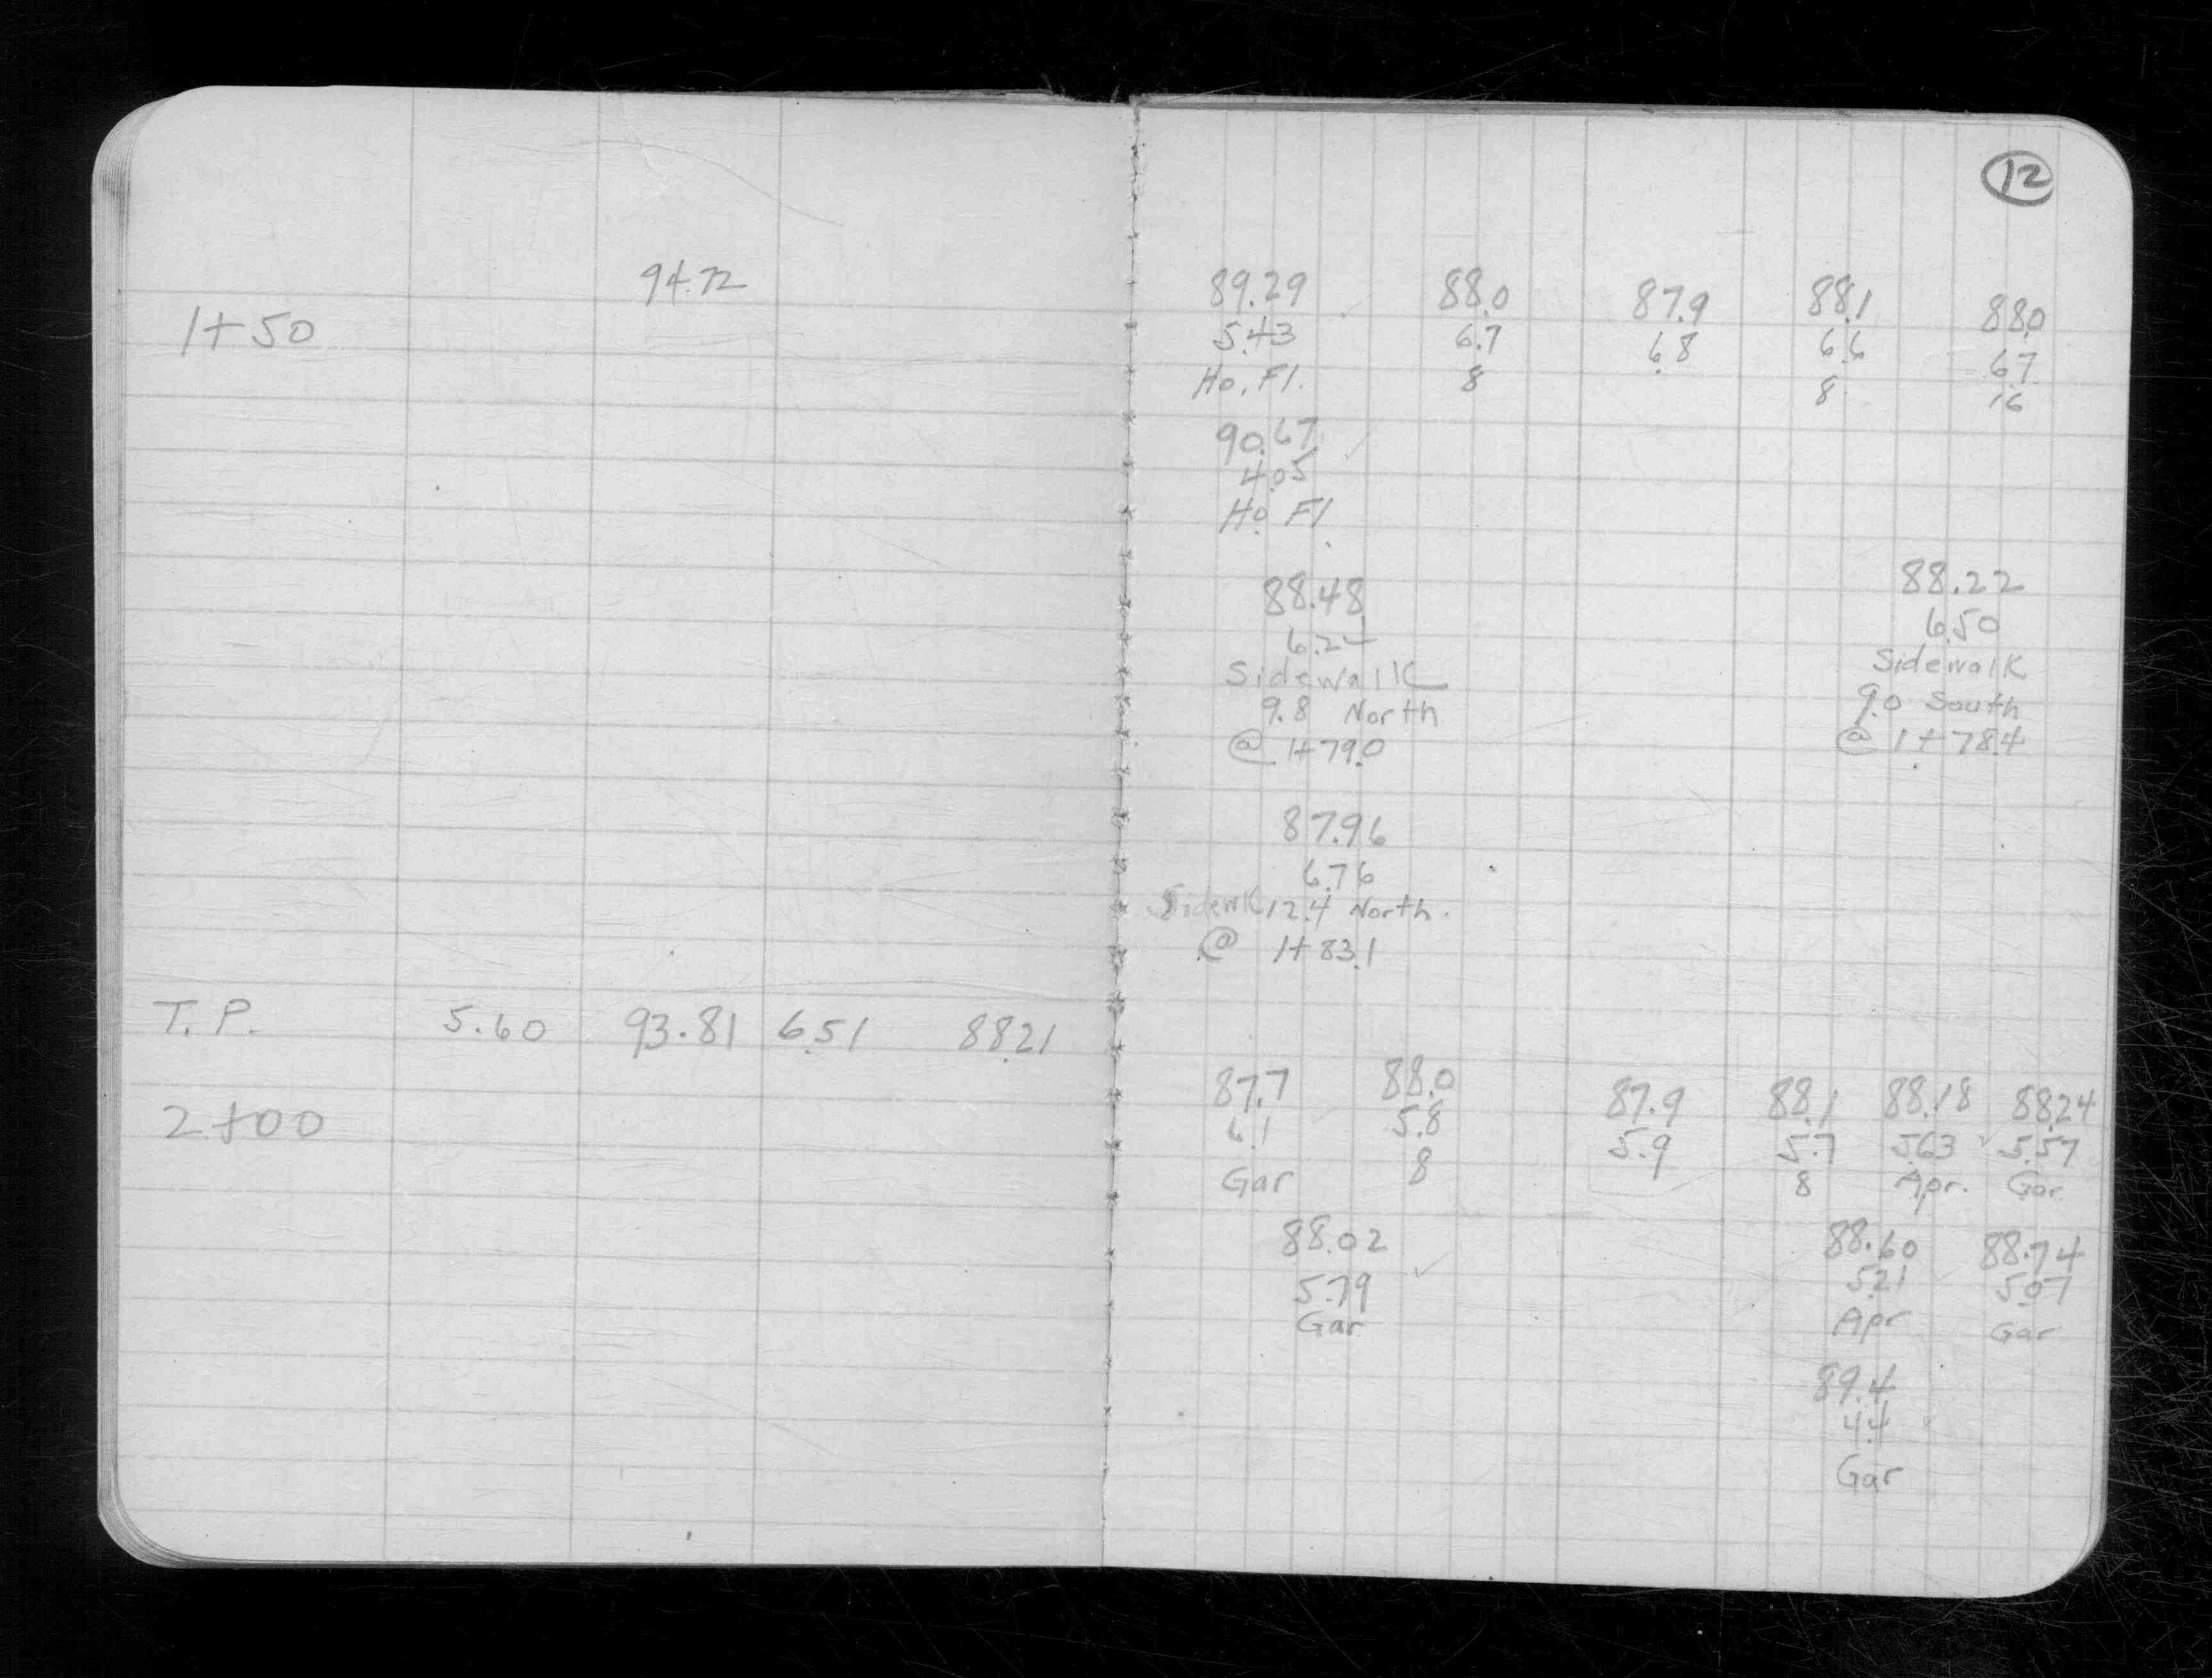 12
94.72
1+50
89.29 88.0 87.9 88.1 88.0
5.43 6.7 6.8 6.6 6.7
Ho. Fl. 8 8 16
90.67
4.05
Ho Fl
88.48
6.24
Sidewalk
9.8 North
@ 1+79.0
88.22
6.50
Sidewalk
9.0 South
@ 1+78.4
87.96
6.76
Sidewk 12.4 North
@ 1+83.1
T. P. 5.60 93.81 6.51 88.21
2+00
87.7 88.0 87.9 88.1 88.18 88.24
6.1 5.8 5.9 5.7 5.63 5.57
Gar 8 8 Apr. Gar
88.02 88.60 88.74
5.79 5.21 5.07
Gar Apr Gar
89.4
4.4
Gar